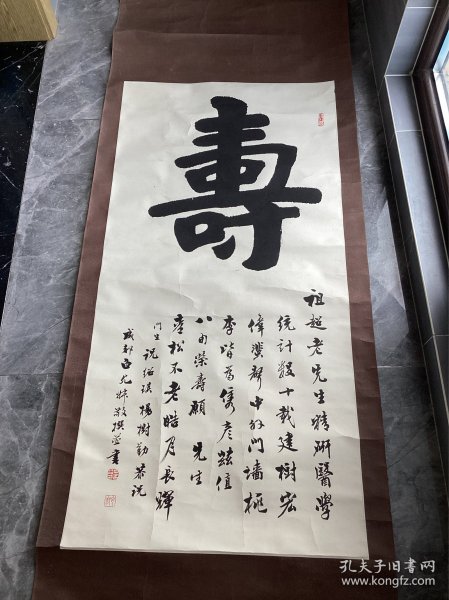 壽
祖超老先生精研醫學
統計數十載建樹宏
偉蜚聲中外門墻桃
李皆爲俊彥茲值
八旬榮壽願 先生
蒼松不老皓月長輝
門生 倪紹祺 楊樹勤 恭祝
成都 敬撰並書
孔夫子旧书网
www.kongfz.com